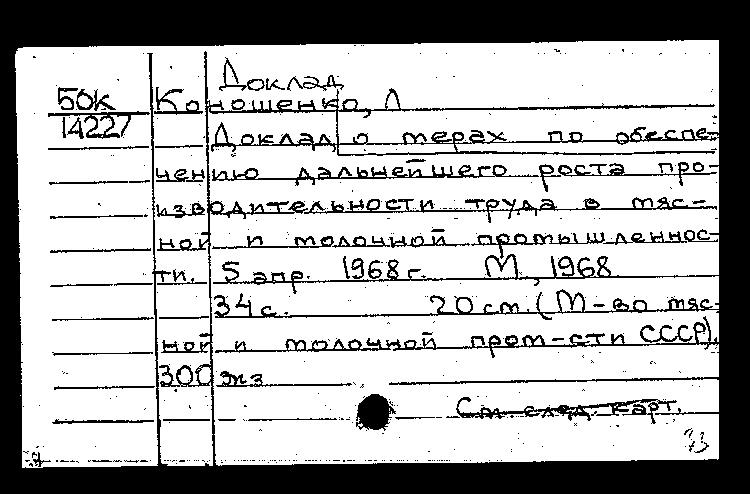 Доклад
50К Коношенко, Л
14227 Доклад о мерах по обеспе-
чению дальнейшего роста про-
изводительности труда в мяс-
ной и молочной промышленнос-
ти. 5 апр. 1968 г. М., 1968
34 с. 20 см. (М-во мяс-
ной и молочной пром-сти СССР).
300 экз
См. след. карт.